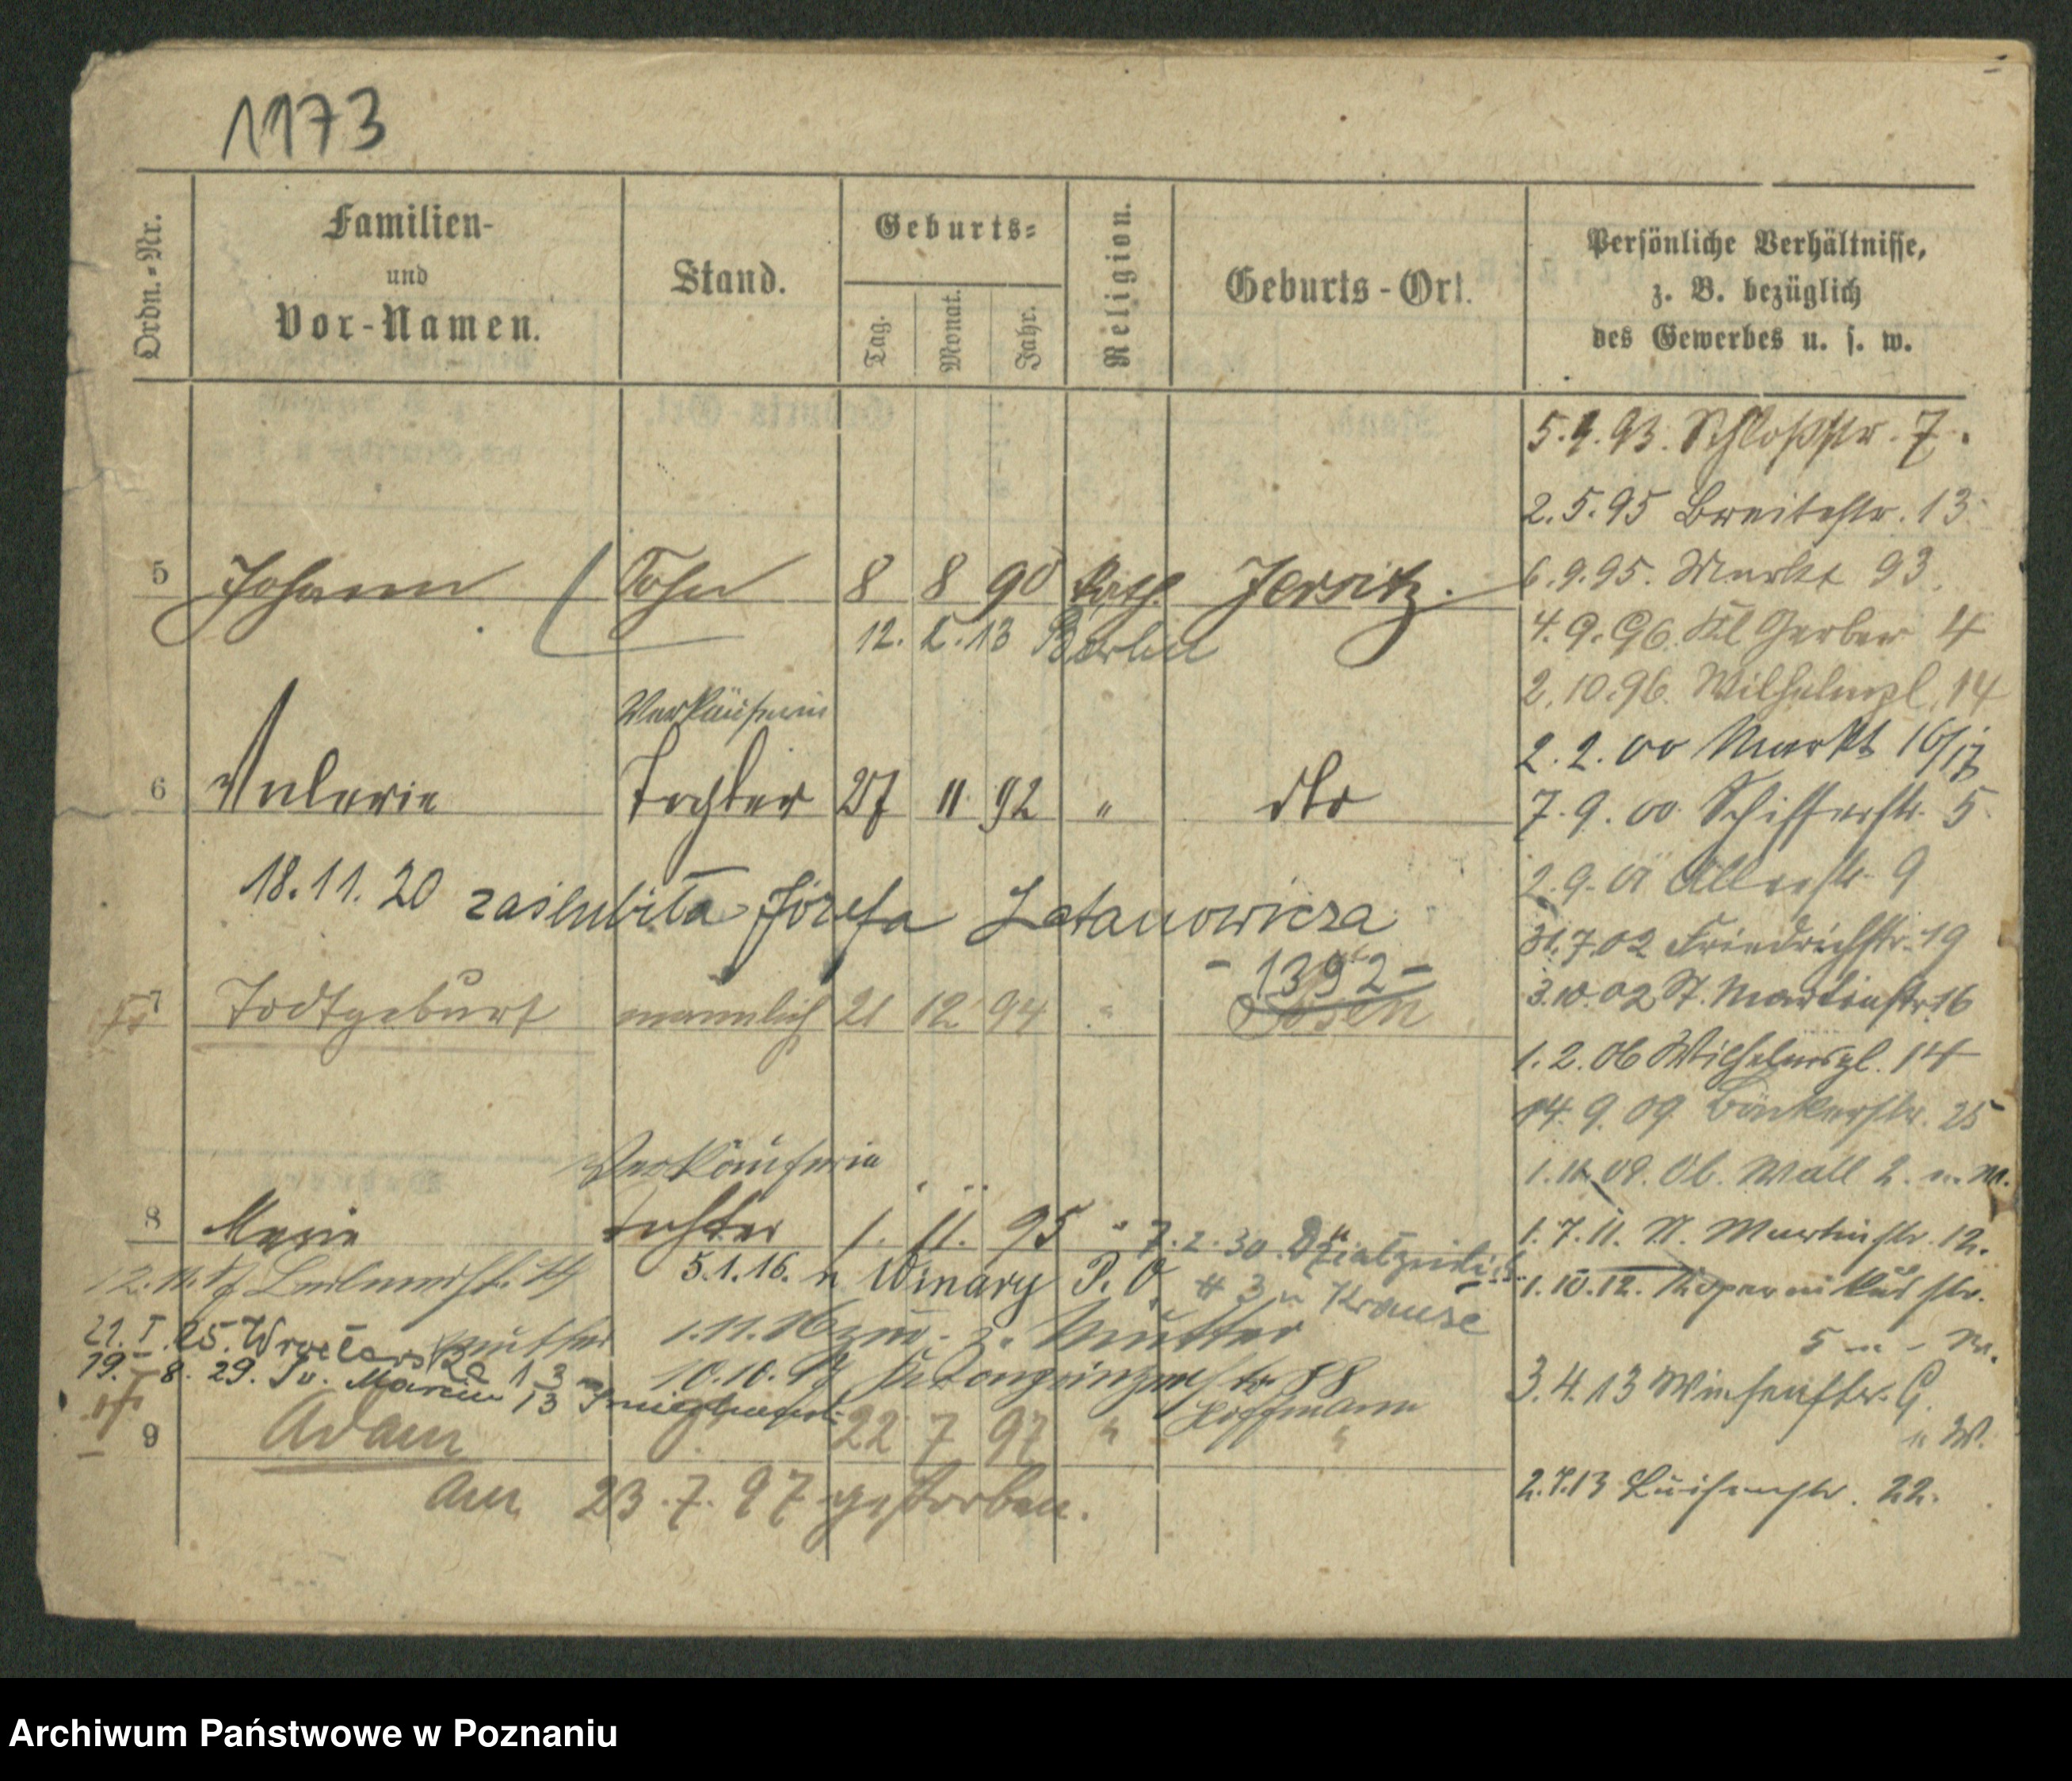 1173
Ordn.-Nr.
Familien-
und
Vor-Namen.
Stand.
Geburts-
Tag.
Monat.
Jahr.
Religion.
Geburts-Ort.
Persönliche Verhältnisse,
z. B. bezüglich
des Gewerbes u. s. w.
5.9.93. Schloßstr. 7.
2.5.95 Breitestr. 13
5 Johann Sohn 8 8 90 kath. Jersitz.
6.9.95. Markt 93
12. 13 Berlin
4.9.96. Kl Gerber 4
2.10.96. Wilhelmpl. 14
Verkäuferin
2.2.00 Markt 16/17
6 Valerie Tochter 27 11 92 " dto
7.9.00 Schifferstr. 5
18.11.20 zaślubiła Józefa Latanowicza
2.9.01 Alleestr. 9
31.7.02 Friedrichstr. 19
- 1392 -
7 Todtgeburt männlich 21 12 94 " Posen
3.10.02 St. Martinstr. 16
1.2.06 Wilhelmspl. 14
14.9.09 Bäckerstr. 25
Verkäuferin
Ob. Wall 2.
8 Marie Tochter 1. 11. 95 "
7.2.30.
1.7.11. St. Martinstr. 12.
5.1.16. n Winary P. O.
3 u Krause
1.10.12. Kopernikusstr.
5
21.I.25. Wrocławs
Mutter
1.11.16 z. Mutter
19.8.29. Św. Marcin 13
10.10. Kronprinzenstr. 88
Hoffmann
3.4.13
9 Adam 22 7 97 " "
am 23.7.97 gestorben.
Luisenstr. 22.
Archiwum Państwowe w Poznaniu